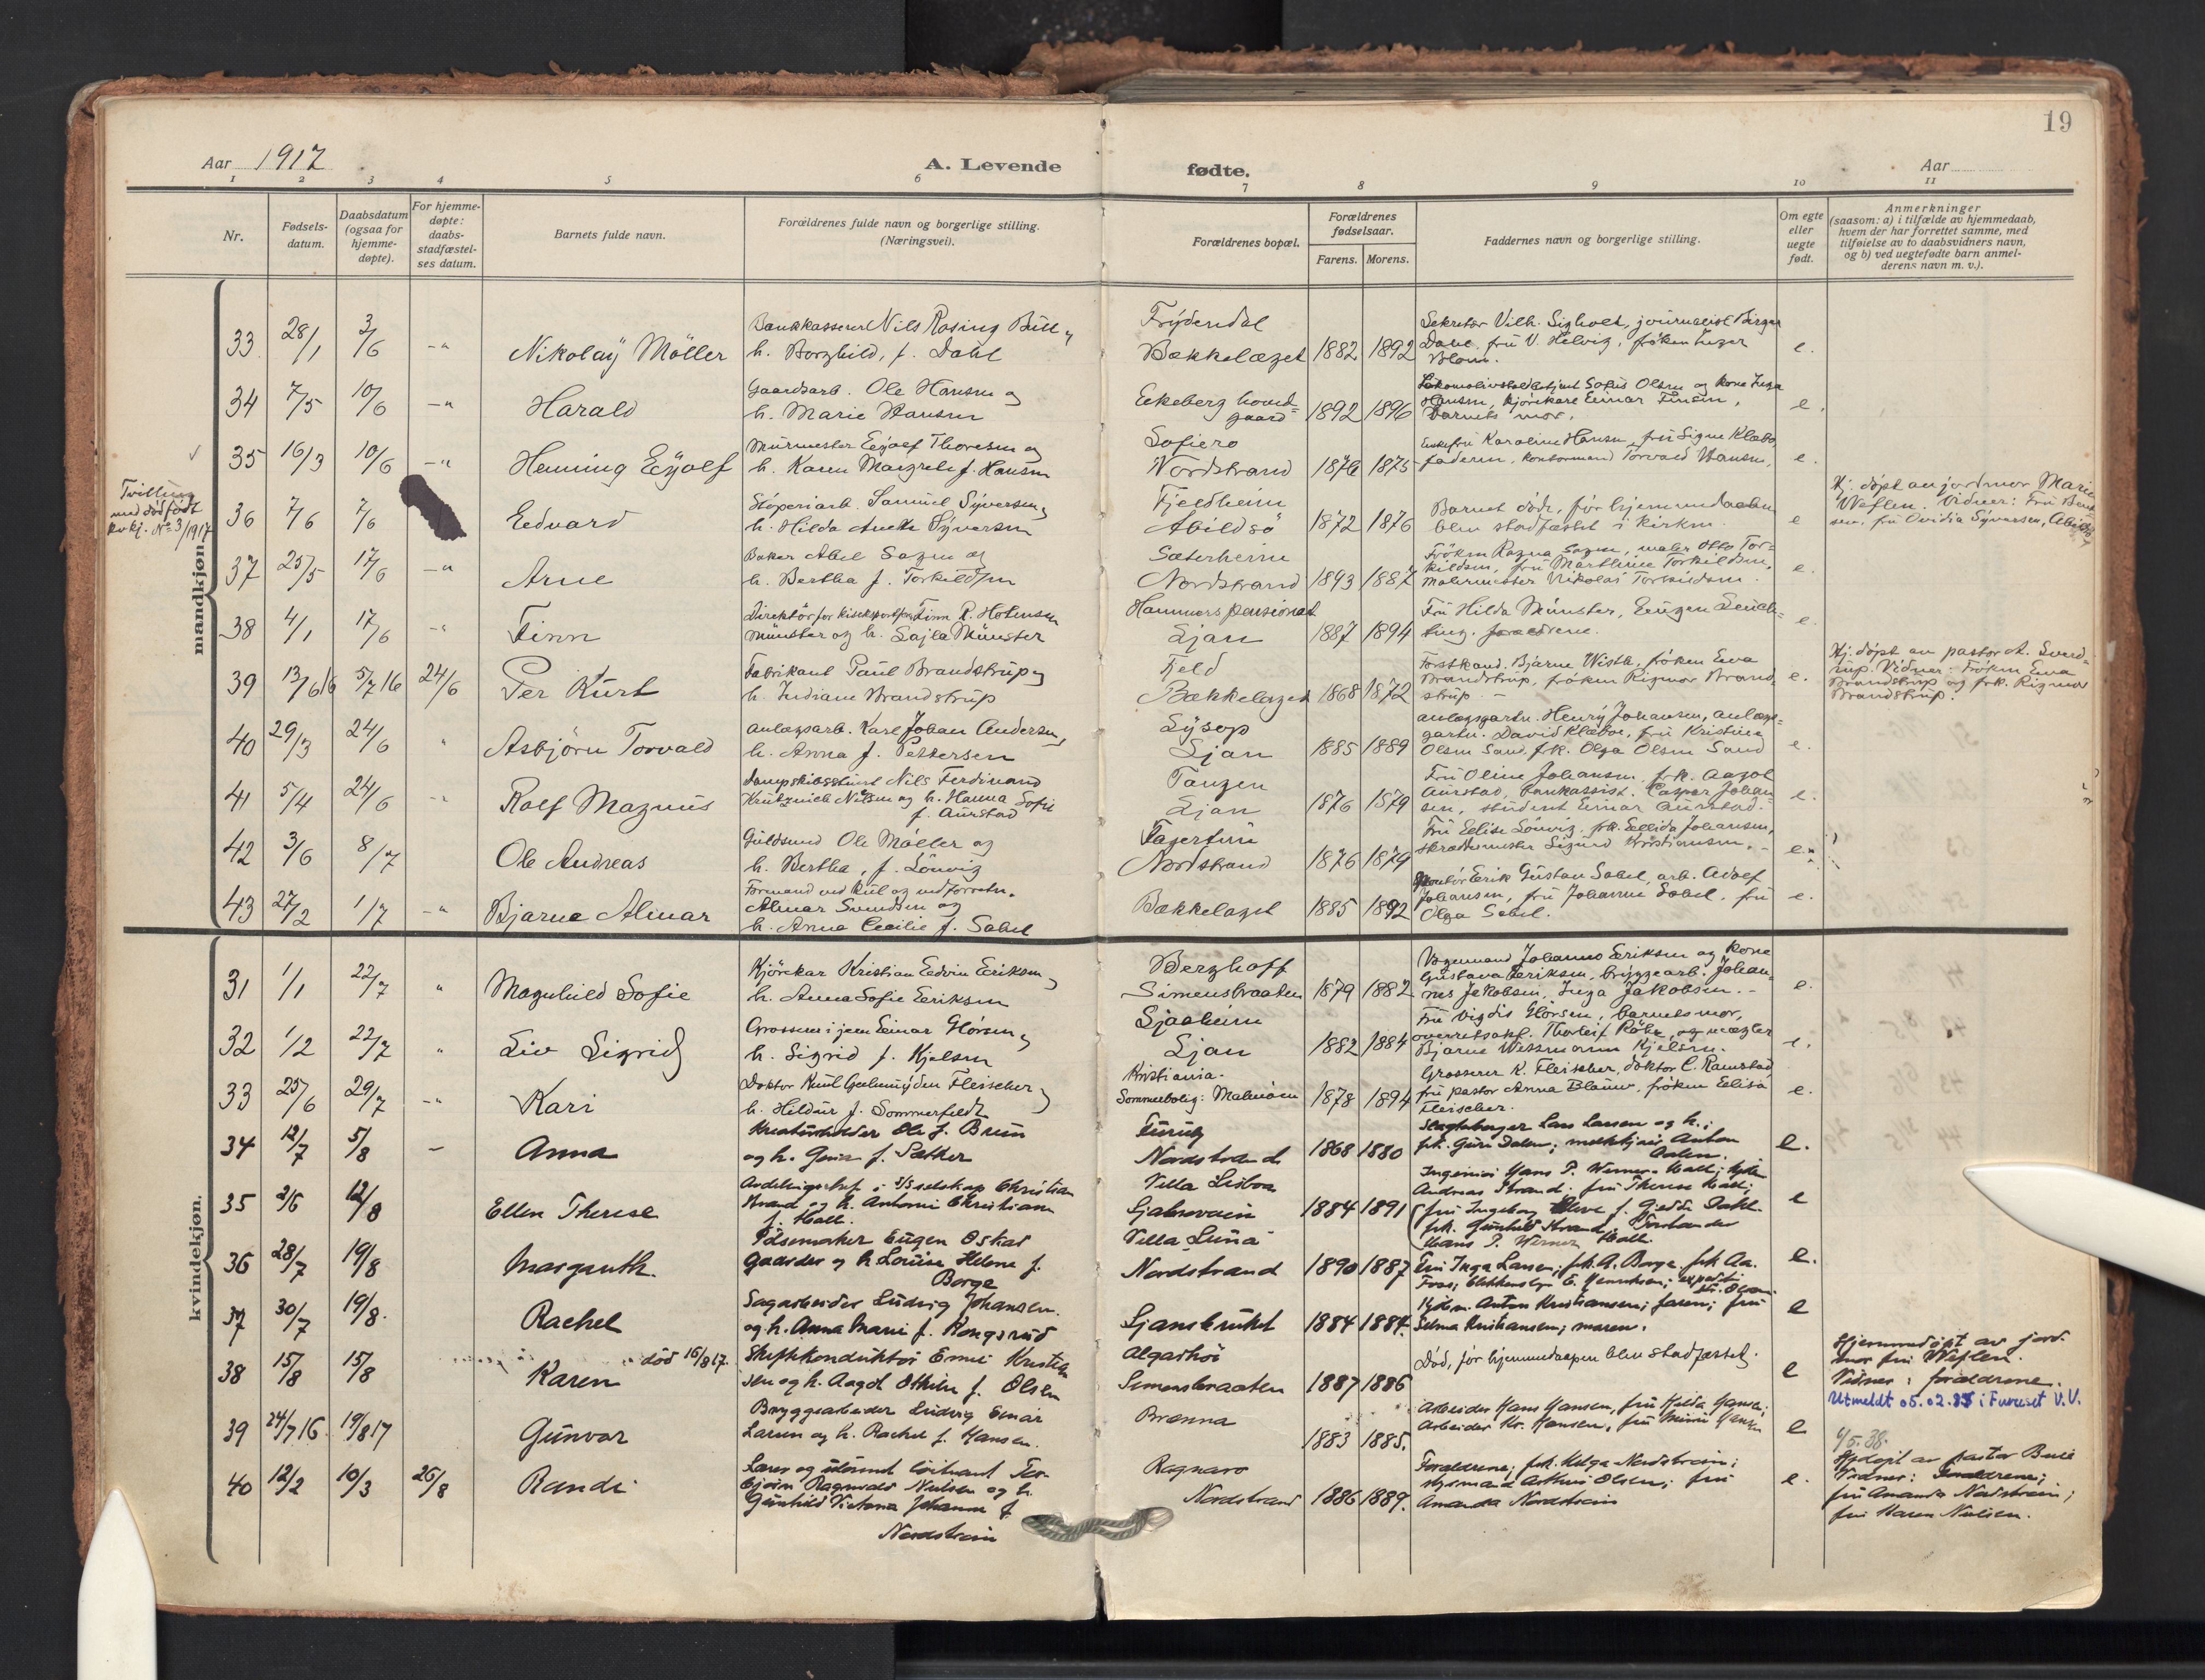 19
Aar 1917
A. Levende fødte.
Aar
1 2 3 4 5 6 7 8 9 10 11
Nr.
Fødsels-
datum.
Daabsdatum
(ogsaa for
hjemme-
døpte).
For hjemme-
døpte:
daabs-
stadfæstel-
ses datum.
Barnets fulde navn.
Forældrenes fulde navn og borgerlige stilling.
(Næringsvei).
Forældrenes bopæl.
Forældrenes
fødselsaar.
Farens. Morens.
Faddernes navn og borgerlige stilling.
Om egte
eller
uegte
født.
Anmerkninger
(saasom: a) i tilfælde av hjemmedaab,
hvem der har forrettet samme, med
tilføielse av to daabsvidners navn,
og b) ved uegtefødte barn anmel-
derens navn m. v.).
mandkjøn
33 28/1 3/6 -"- Nikolaÿ Möller
Bankkasserer Nils Rosing Bull og
h. Borghild, f. Dahl
Frydendal
Bækkelaget 1882 1892
Sekretær Vilh. Sigholt, journalist Birger
Dahl, fru V. Helvig, fröken Inger
Blom. e.
34 7/5 10/6 -"- Harald
Gaardsarb. Ole Hansen og
h. Marie Hansen
Ekeberg hoved-
gaard 1892 1896
Olsen og kone Inga
Hansen, kjörekarl Einar Finsen,
barnets mor. e.
35 16/3 10/6 -"- Henning Eÿolf
Murmester Eÿolf Thoresen og
h. Karen Margrete f. Hansen
Sofiero
Nordstrand 1876 1875
Enkefru Karoline Hansen, fru Signe Klæbo,
faderen, kontormand Torvald Hansen, e.
Tvilling
med dödfödt
kvkj. No 3/1917
36 7/6 7/6 Edvard
Stöperiarb. Samuel Syversen og
h. Hilda Anette Syversen
Fjeldheim
Abildsö 1872 1876
Barnet döde, för hjemmedaaben
blev stadfæstet i kirken. e
Hj. döpt av jordmor Marie
Weflen. Vidner: Fru Bent-
sen, fru Ovidia Syversen, Abildsö
37 25/5 17/6 -"- Arne
Baker Abel Sagen og
h. Bertha f. Torkildsen
Sæterheim
Nordstrand 1893 1887
Fröken Ragna Sagen, maler Otto Tor-
kildsen, fru Marthine Torkildsen,
malermester Nikolai Torkildsen. e.
38 4/1 17/6 -"- Finn
Finn R. Holmsen
Münster og h. Lajla Münster
Hammers pensionat
Ljan 1887 1894
Fru Hilda Münster, Eugen
forældrene. e.
39 13/6 16 5/7 16 24/6 Per Kurt
Fabrikant Paul Brandstrup og
h. Indiane Brandstrup
Fjeld
Bækkelaget 1868 1872
Forstkand. Bjarne Wisth, fröken Ewa
Brandstrup, fröken Rigmor Brand-
strup. - e.
Hj. döpt av pastor A. Svend-
rup. Vidner: Fröken Ewa
Brandstrup og frk. Rigmor
Brandstrup.
40 29/3 24/6 " Asbjörn Torvald
Anlægsarb. Karl Johan Andersen,
h. Anna f. Pettersen
Lysego
Ljan 1885 1889
Anlægsgartn. Henry Johansen, anlægs-
gartn. David Klæboe, fru Kristine
Olsen Sand, frk. Olga Olsen Sand e.
41 5/4 24/6 -"- Rolf Magnus
Nils Ferdinand
Nilsen og h. Hanna Sofie
f. Aurstad
Tangen
Ljan 1876 1879
Fru Oline Johansen, frk. Aagot
Aurstad, bankassist. Caspar Johan-
sen, student Einar Aurstad. e.
42 3/6 8/7 Ole Andreas
Guldsmed Ole Möller og
h. Bertha, f. Lönvig
Fagerfuru
Nordstrand 1876 1879
Fru Elise Lönvig, frk. Ellida Johansen,
skræddermester Sigurd Kristiansen. - e.
43 27/2 1/7 -"- Bjarne Almar
Formand ved kul og vedforretn.
Almar Svendsen og
h. Anna Cecilie f. Sabel
Bækkelaget 1885 1892
Erik Gustav Sabel, arb. Adolf
Johansen, fru Johanne Sabel, fru
Olga Sabel. e.
kvindekjøn.
31 1/1 22/7 " Magnhild Sofie
Kjörekar Kristian Edvin Eriksen og
h. Anna Sofie Eriksen
Berghoff
Simensbraaten 1879 1882
Vognmand Johannes Eriksen og kone
Gustava Eriksen, bryggearb. Johan-
nes Jakobsen, Inga Jakobsen. - e.
32 1/2 22/7 " Liv Sigrid
Grosserer i jern Einar Glörsen og
h. Sigrid f. Kjelsen
Sjøheim
Ljan 1882 1884
Fru Vigdis Glörsen, barnets mor,
overretssakf. Thorleif og mægler
Bjarne Wessmann Kjelsen. e.
33 25/6 29/7 -"- Kari
Doktor Knut Geelmuyden Fleischer og
h. Hildur f. Sommerfeldt
Kristiania.
Sommerbolig: Malmöen 1878 1894
Grosserer K. Fleischer, doktor C. Ramstad,
fru pastor Anna Blauw, fröken Elisa
Fleischer. e.
34 12/7 5/8 - Anna
Kreaturholder Ole J. Bruu
og h. f. Sæther
Furuly
Nordstrand 1868 1880
Lars Larsen og h.;
frk. Guri Dalen; Anton
Dalen. e.
35 2/6 12/8 Ellen Therese
Avdelingschef i A/S selskap Christian
Strand og h. Antonie Christiane
f. Hall.
Villa Lisboa
Ljabroveien 1884 1891
Ingeniör Hans P. Werner-Hall;
Andreas Strand; fru Therese Hall;
fru Ingeborg f. Dahl.
frk. Gunhild Strand.
Hans P. Werner Hall. e
36 28/7 19/8 Margreth.
Pölsemaker Eugen Oskar
Gaarder og h. Louise Helene f.
Borge
Villa "Luna"
Nordstrand 1890 1887
Fru Inga Larsen; frk. A. Borge, frk Aa.
Foss; E. Henriksen; e.
37 30/7 19/8. Rachel
Sagarbeider Ludvig Johansen.
og h. Anna Marie f. Kongsrud
Ljansbruket 1884 1884.
Anton Kristiansen; faren; fru
Selma Kristiansen; moren. e
38 15/8 15/8 Karen död 16/8 17.
Skiftkonduktör Emil Kristian-
sen og h. Aagot Othilie f. Olsen
Algarheim
Simensbraaten 1887 1886
Död, för hjemmedaapen blev stadfæstet. e
Hjemmedöpt av jord-
mor fru Weflen.
Vidner: forældrene.
Utmeldt 05.02.85 i Furuset V.V.
39 24/7 16 19/8 17 Gunvor
Bryggearbeider Ludvig Einar
Larsen og h. Rachel f. Hansen.
Brænna
1883 1885.
Arbeider Hans Hansen, fru Hilda Hansen;
Arbeider Kr. Hansen, fru Minni Hansen e
6/5.38.
40 12/2 10/3 26/8 Randi
Lærer og
Ragnvald Nielsen og h.
Gunhild Victoria Johanne f.
Nordström
Ragnaro
Nordstrand 1886 1889.
Forældrene; frk. Helga Nordström;
styrmand Arthur Olsen; fru
Amanda Nordström e.
Hjdöpt av pastor Bull
Vidner: Forældrene;
fru Amanda Nordström;
fru Maren Nielsen.